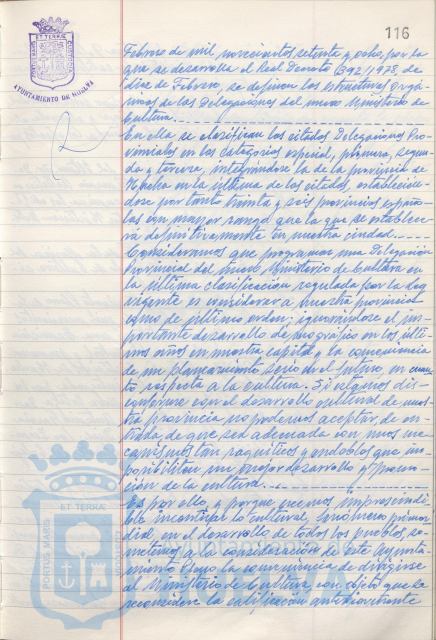 116
PORTUS MARIS ET TERRAE CUSTODIA
AYUNTAMIENTO DE HUELVA
Febrero de mil novecientos setenta y ocho, por la
que se desarrolla el Real Decreto (392/1978, de
diez de Febrero, se definen las estructuras orgá-
nicas de las Delegaciones del nuevo Ministerio de
Cultura.
En ella se clasifican las citadas Delegaciones Pro-
vinciales en las categorías especial, primera, segun-
da y tercera, integrándose la de la provincia de
Huelva en la última de las citadas, establecién-
dose por tanto treinta y seis provincias españo-
las con mayor rango que la que se establece-
rá definitivamente en nuestra ciudad.
Consideramos que programar una Delegación
Provincial del nuevo Ministerio de Cultura en
la última clasificación regulada por la Ley
vigente es considerar a nuestra provincia
como de último orden; ignorándose el im-
portante desarrollo demográfico en los últi-
mos años en nuestra capital y la consecuencia
de un planeamiento serio de el futuro en cuan-
to respecta a la cultura. Si estamos dis-
conforme con el desarrollo cultural de nues-
tra provincia no podemos aceptar de en-
trada de que sea ademada con unos me-
canismos tan raquíticos y endebles que im-
posibiliten un mejor desarrollo y promo-
ción de la cultura.
Es por ello y porque creemos imprescindi-
ble incentivar lo cultural, fenómeno primor-
dial en el desarrollo de todos los pueblos, so-
metemos a la consideración de este Ayunta-
miento Pleno la conveniencia de dirigirse
al Ministerio de Cultura con objeto que se
reconsidere la calificación anteriormente
PORTUS MARIS ET TERRAE CUSTODIA